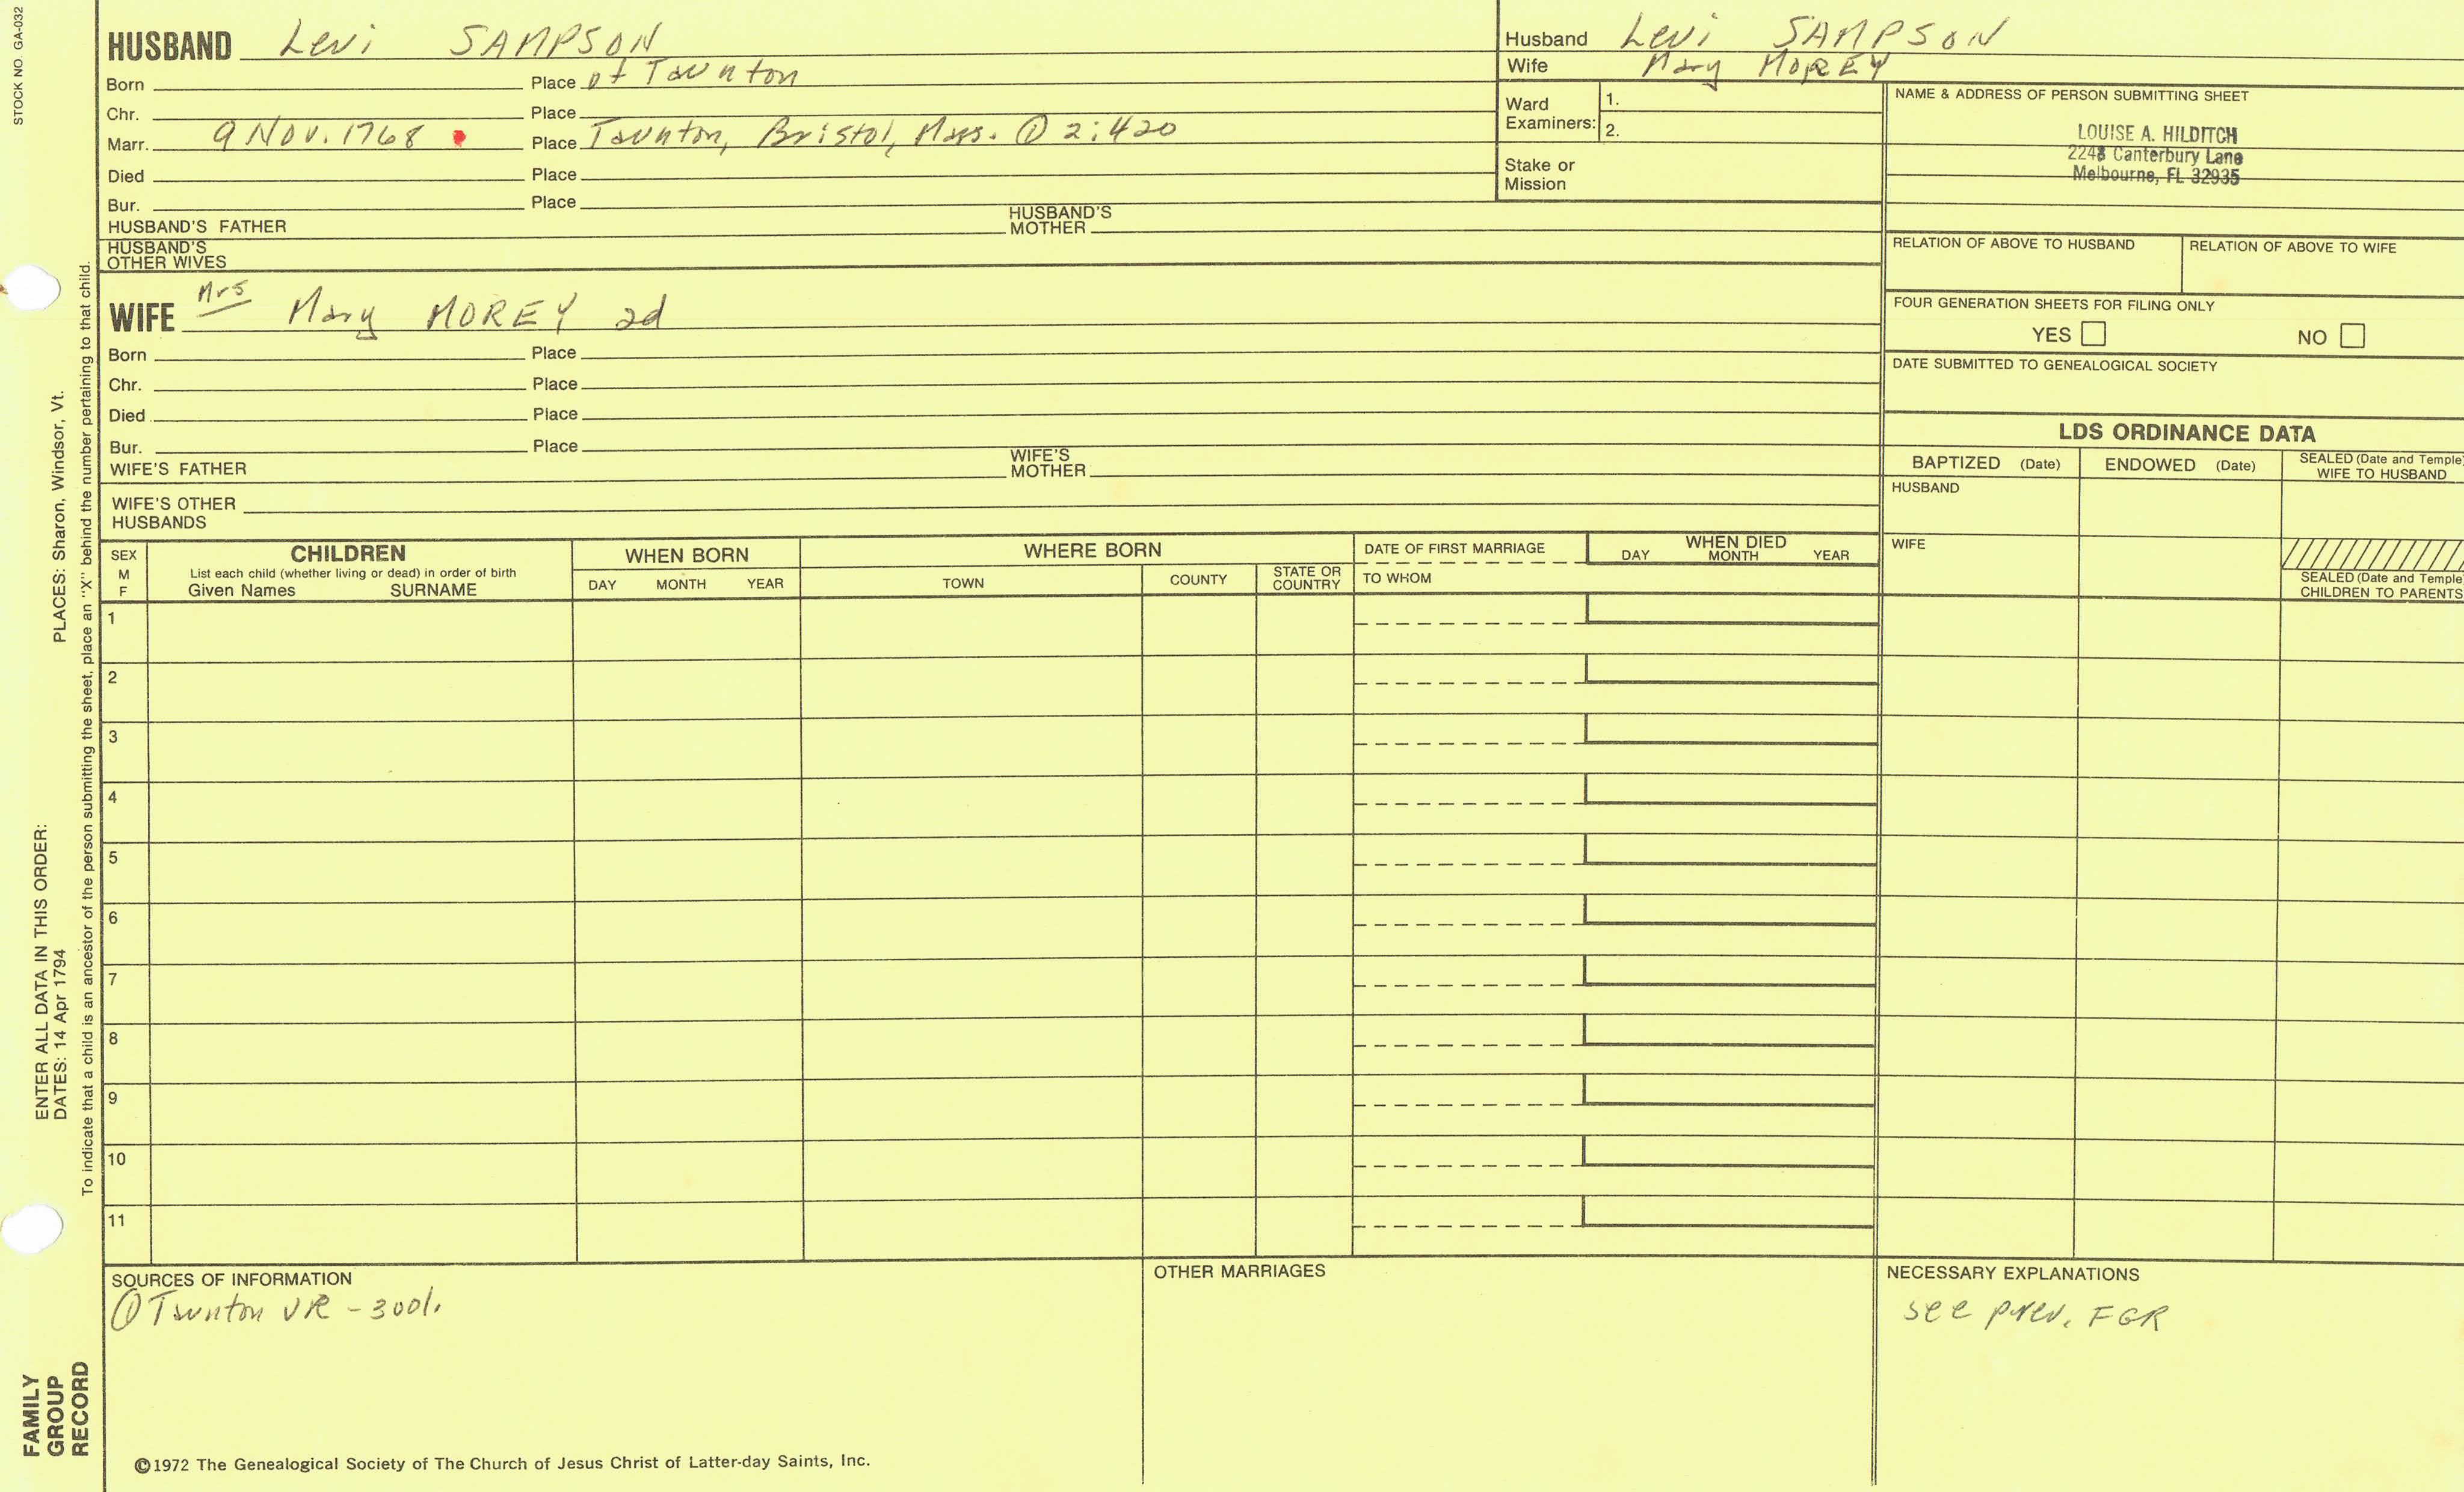 STOCK NO. GA-032
HUSBAND Levi SAMPSON
Born Place of Taunton
Chr. Place
Marr. 9 Nov. 1768 Place Taunton, Bristol, Mass. ① 2:420
Died Place
Bur. Place
HUSBAND'S FATHER HUSBAND'S MOTHER
HUSBAND'S OTHER WIVES
Husband Levi SAMPSON
Wife Mary MOREY
Ward Examiners: 1.
2.
Stake or Mission
NAME & ADDRESS OF PERSON SUBMITTING SHEET
LOUISE A. HILDITCH
2248 Canterbury Lane
Melbourne, FL 32935
RELATION OF ABOVE TO HUSBAND RELATION OF ABOVE TO WIFE
FOUR GENERATION SHEETS FOR FILING ONLY
YES NO
DATE SUBMITTED TO GENEALOGICAL SOCIETY
WIFE Mrs Mary MOREY 2d
Born Place
Chr. Place
Died Place
Bur. Place
WIFE'S FATHER WIFE'S MOTHER
WIFE'S OTHER HUSBANDS
LDS ORDINANCE DATA
BAPTIZED (Date) ENDOWED (Date) SEALED (Date and Temple) WIFE TO HUSBAND
HUSBAND
WIFE
SEALED (Date and Temple) CHILDREN TO PARENTS
SEX M F
CHILDREN
List each child (whether living or dead) in order of birth
Given Names SURNAME
WHEN BORN
DAY MONTH YEAR
WHERE BORN
TOWN COUNTY STATE OR COUNTRY
DATE OF FIRST MARRIAGE
TO WHOM
WHEN DIED
DAY MONTH YEAR
1
2
3
4
5
6
7
8
9
10
11
SOURCES OF INFORMATION
① Taunton VR - 3001.
OTHER MARRIAGES
NECESSARY EXPLANATIONS
see prev. FGR
©1972 The Genealogical Society of The Church of Jesus Christ of Latter-day Saints, Inc.
FAMILY
GROUP
RECORD
ENTER ALL DATA IN THIS ORDER:
DATES: 14 Apr 1794 PLACES: Sharon, Windsor, Vt.
To indicate that a child is an ancestor of the person submitting the sheet, place an "X" behind the number pertaining to that child.